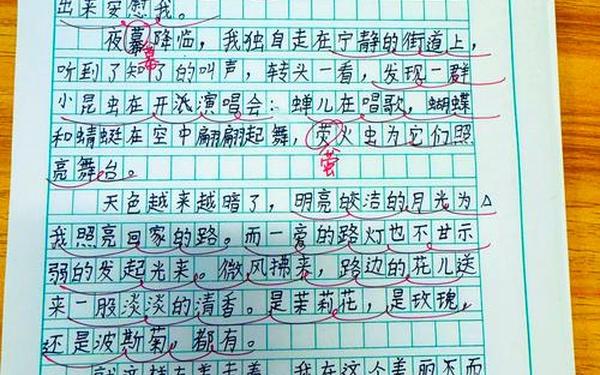 出来安慰我。
夜幕降临，我独自走在宁静的街道上，
幕
听到了知了的叫声，转头一看，发现一群
小昆虫在开派演唱会：蝉儿在唱歌，蝴蝶
和蜻蜓在空中翩翩起舞，荧火虫为它们照
萤
亮舞台。
天色越来越暗了，明亮皎洁的月光为
我照亮回家的路。而一旁的路灯也不甘示
弱的发起光来。微风拂来，路边的花儿送
来一股淡淡的清香。是茉莉花，是玫瑰，
还是波斯菊。都有。
我在这个美丽不而